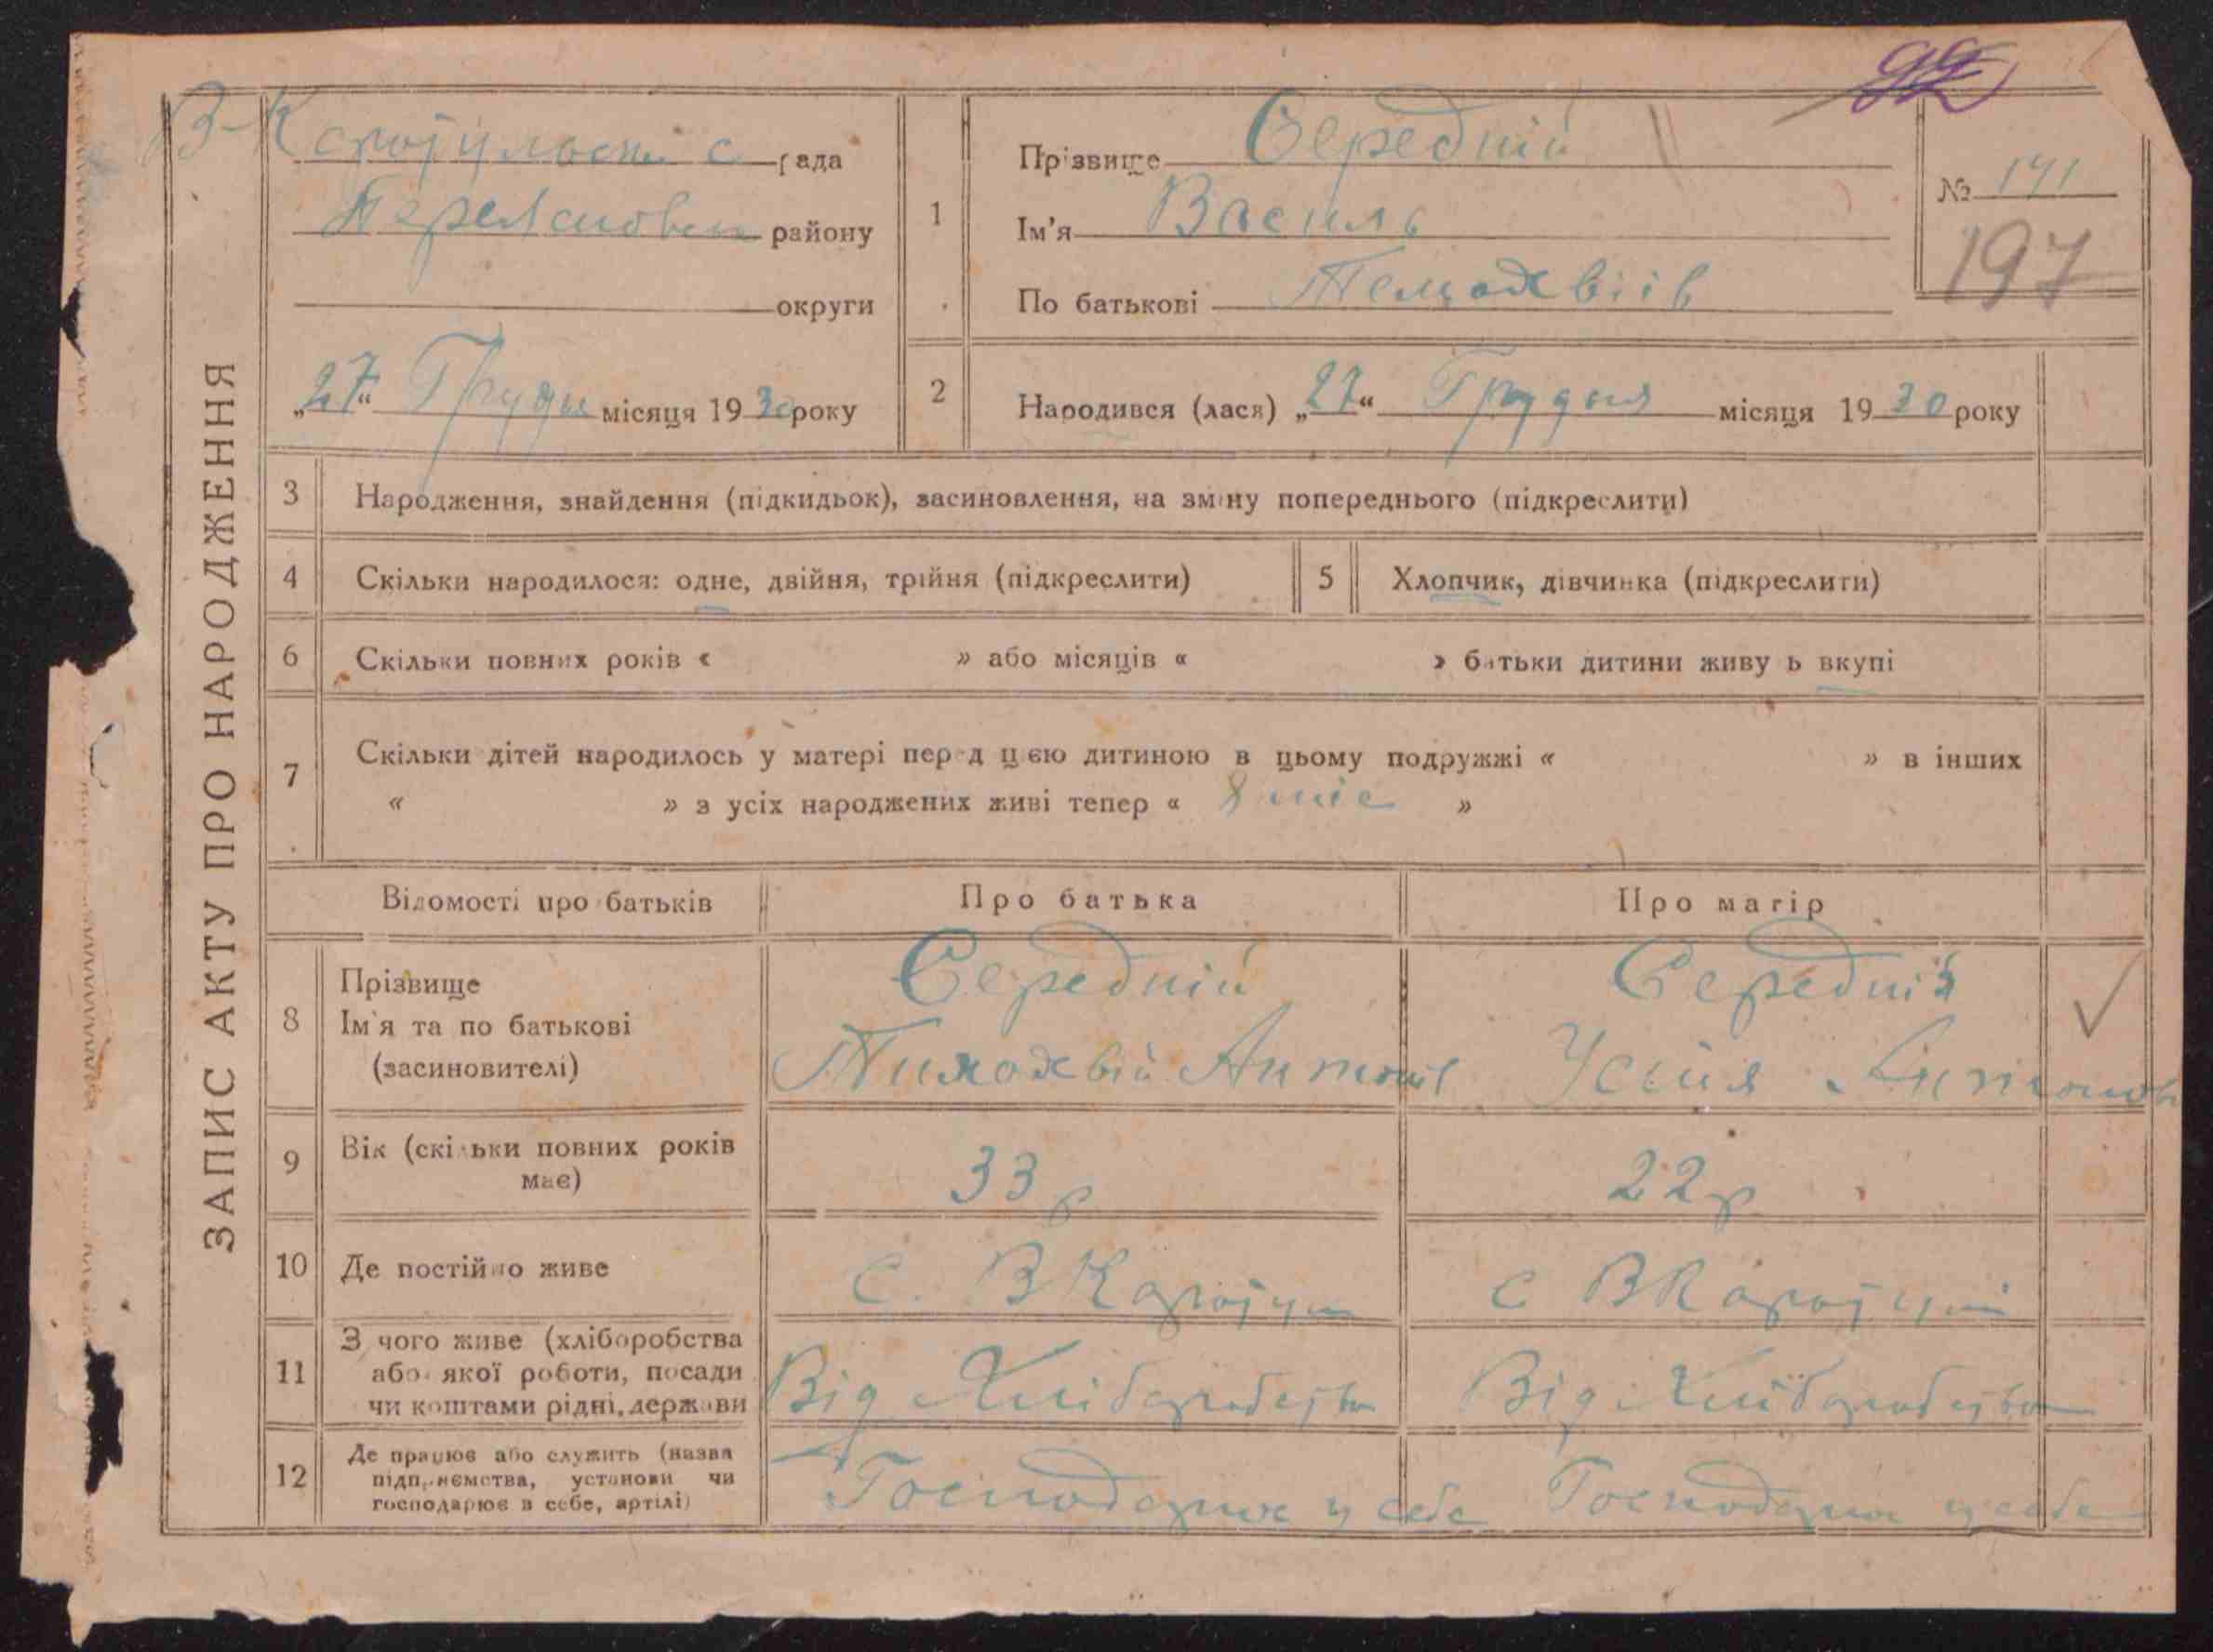 92
ЗАПИС АКТУ ПРО НАРОДЖЕННЯ
В-Каратульськ с рада
Переяславськ району
округи
„27“ Грудн місяця 1930 року
1
Прізвище Середній
Ім'я Василь
По батькові
№ 141
197
2
Народився (лася) „27“ Грудня місяця 1930 року
3 Народження, знайдення (підкидьок), засиновлення, на зміну попереднього (підкреслити)
4 Скільки народилося: одне, двійня, трійня (підкреслити)
5 Хлопчик, дівчинка (підкреслити)
6 Скільки повних років « » або місяців « » батьки дитини живуть вкупі
7 Скільки дітей народилось у матері перед цією дитиною в цьому подружжі « » в інших
« » з усіх народжених живі тепер « »
Відомості про батьків
Про батька
Про матір
8 Прізвище
Ім'я та по батькові
(засиновителі)
Середній
Антонів
Середня
Антонов
9 Вік (скільки повних років
має)
33 р
22 р
10 Де постійно живе
с. В Каратул
с В Каратул
11 З чого живе (хліборобства
або якої роботи, посади
чи коштами рідні, держави
Від Хліборобства
Від Хліборобства
12 Де працює або служить (назва
підприємства, установи чи
господарює в себе, артілі)
Господарює у себе
Господарює у себе